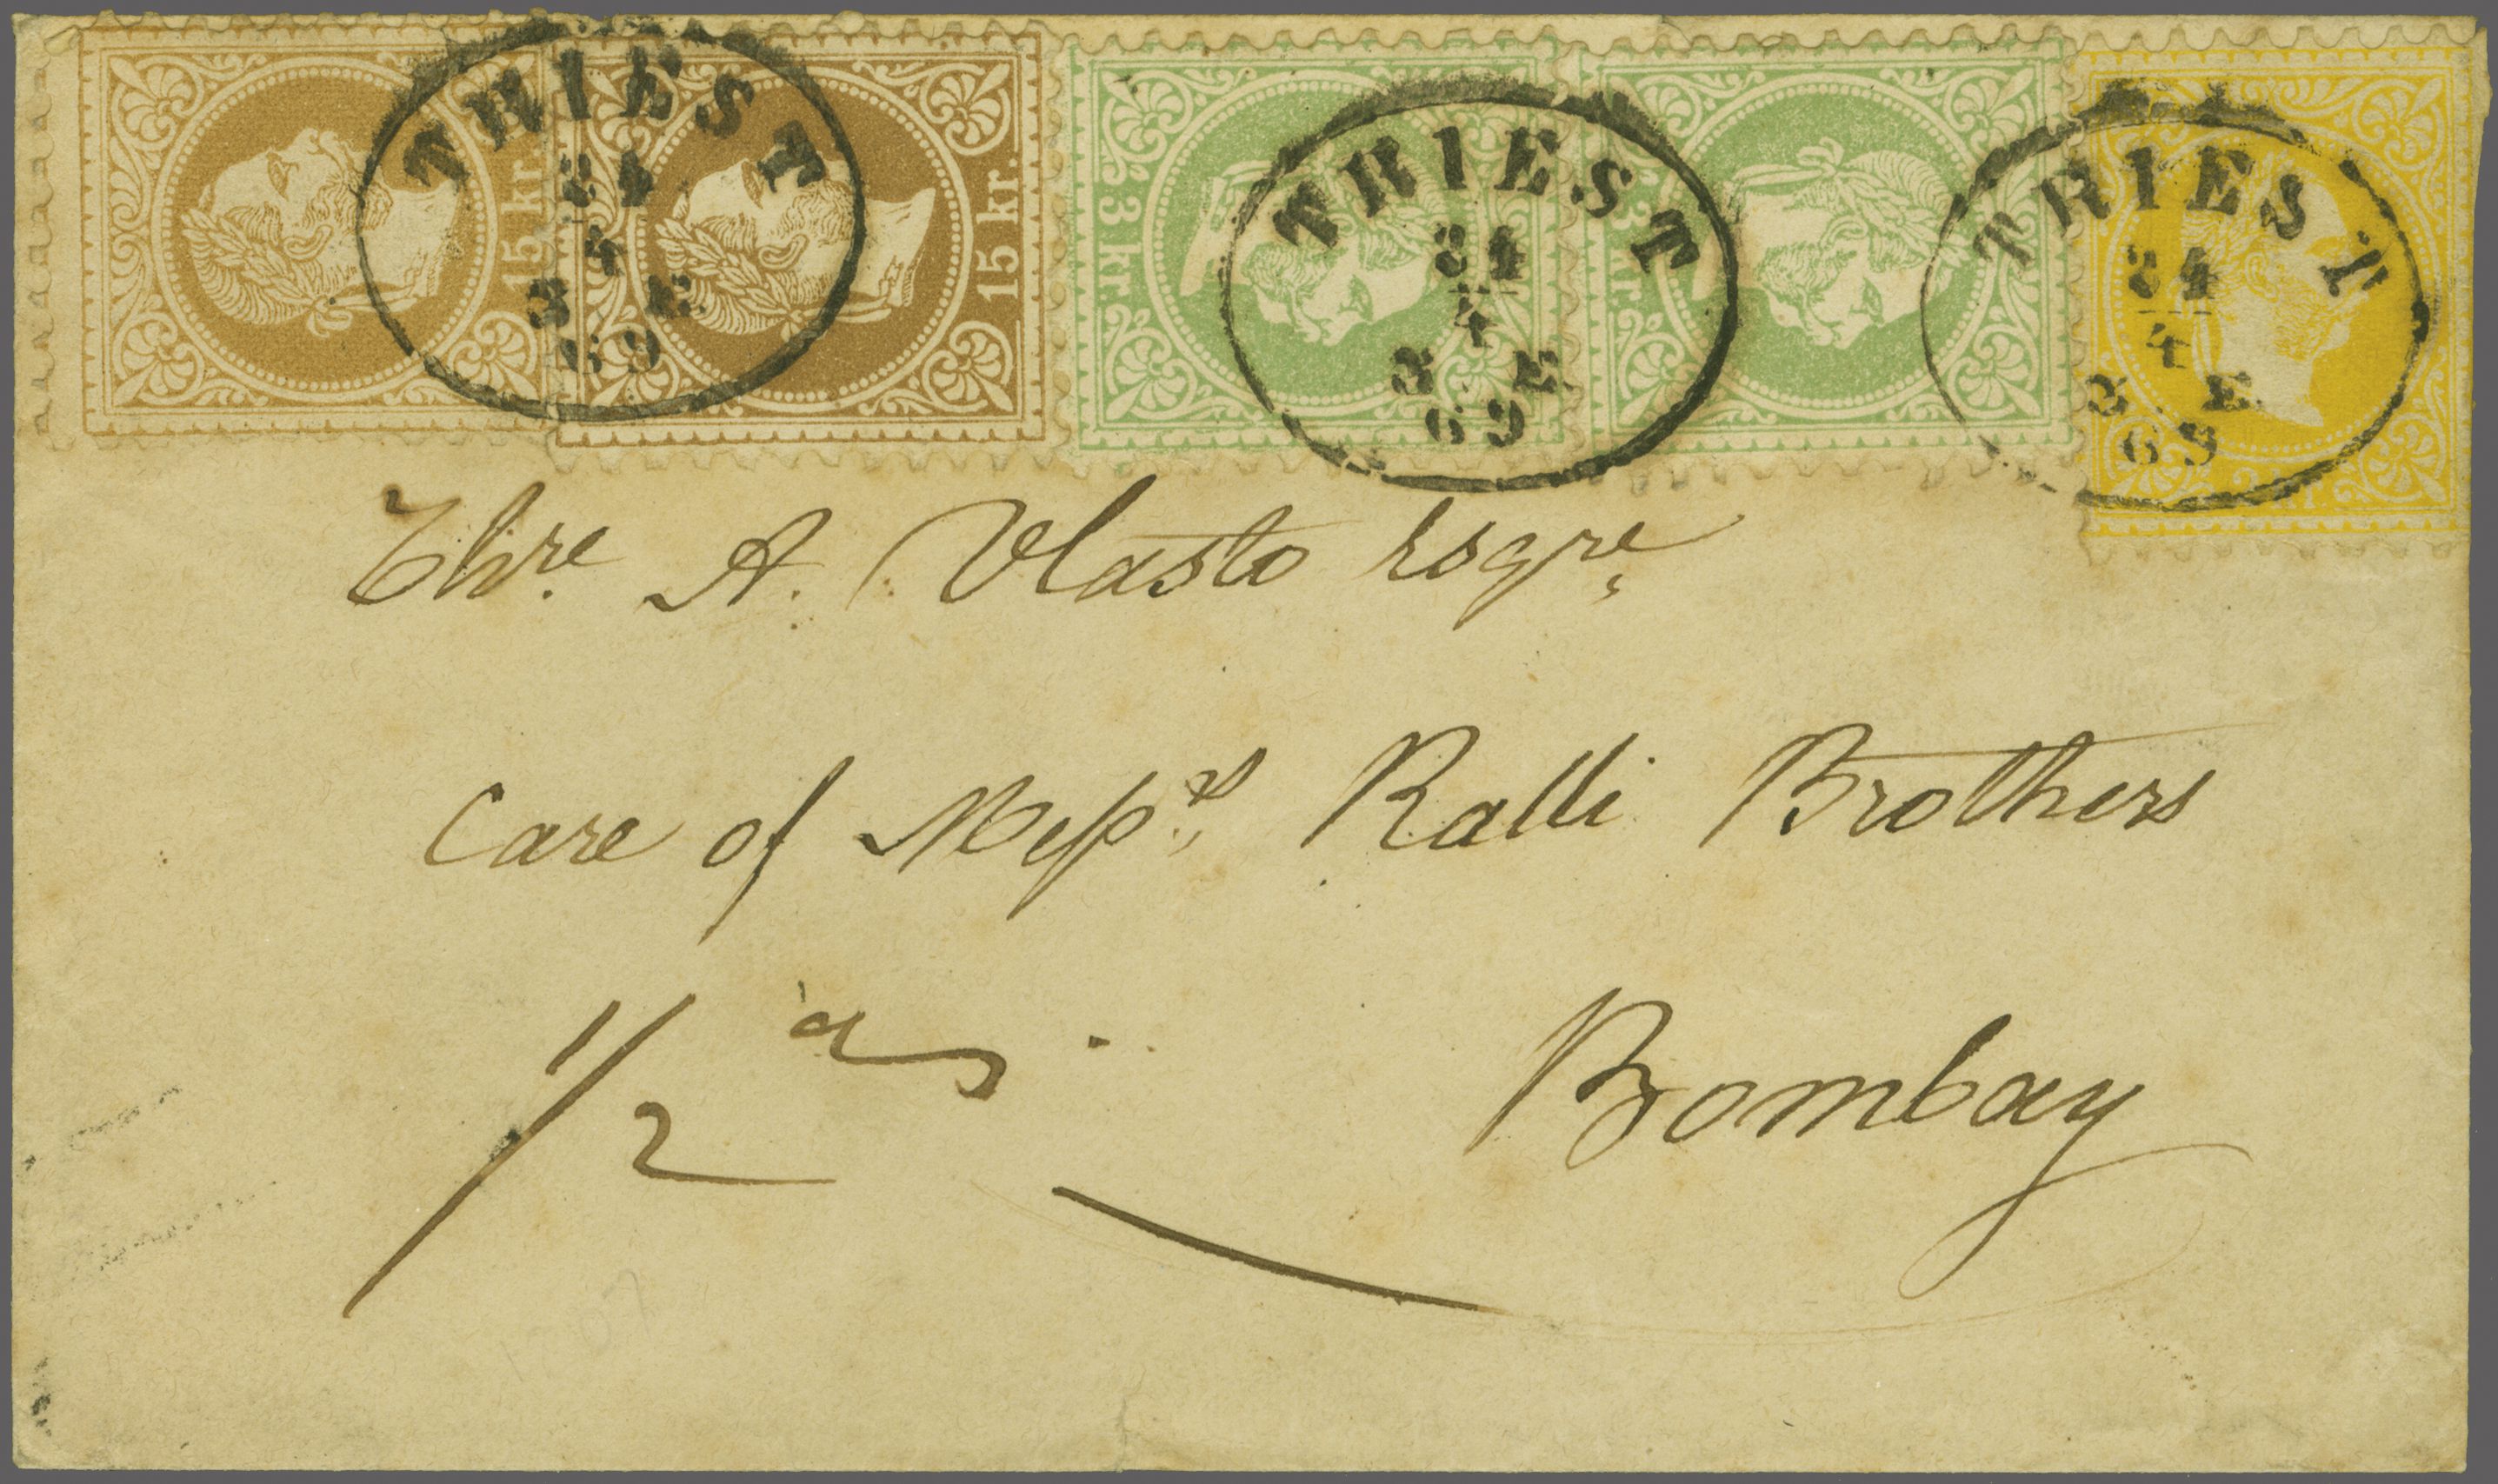 15 kr.
15 kr.
3 kr.
3 kr.
2 kr.
TRIEST
24
4
3 E
69
TRIEST
24
4
3 E
69
TRIEST
24
4
3 E
69
A. Vlasto Esqre
Care of Messrs Ralli Brothers
1/2 as.
Bombay